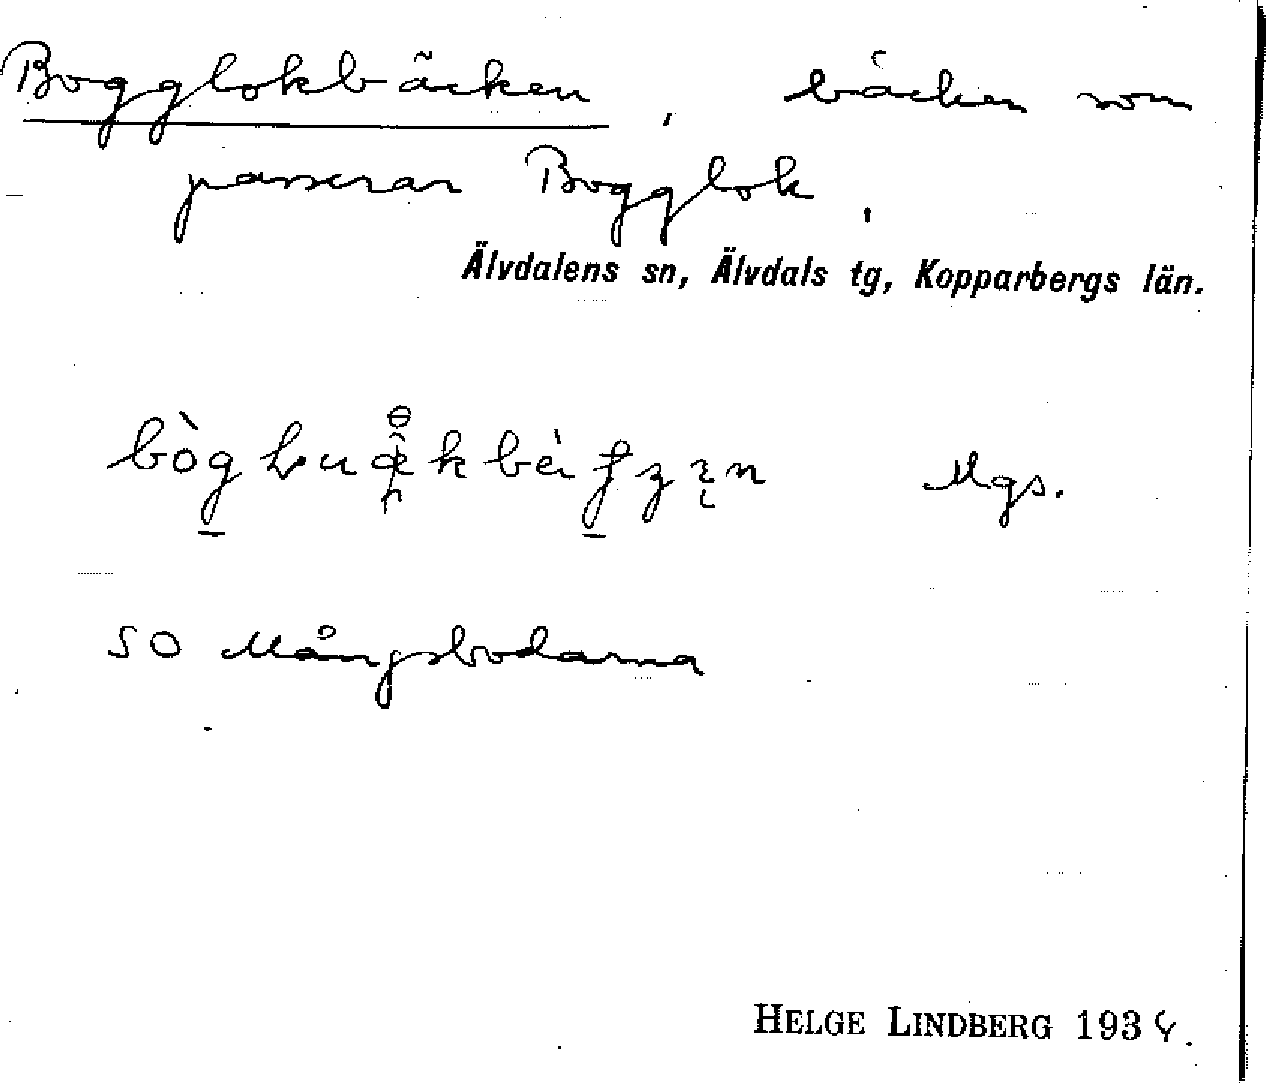 Bogglokbäcken, bäcken som
passerar Bogglok.
Älvdalens sn, Älvdals tg, Kopparbergs län.
Mgs.
SO Mångsbodarna
HELGE LINDBERG 1934.